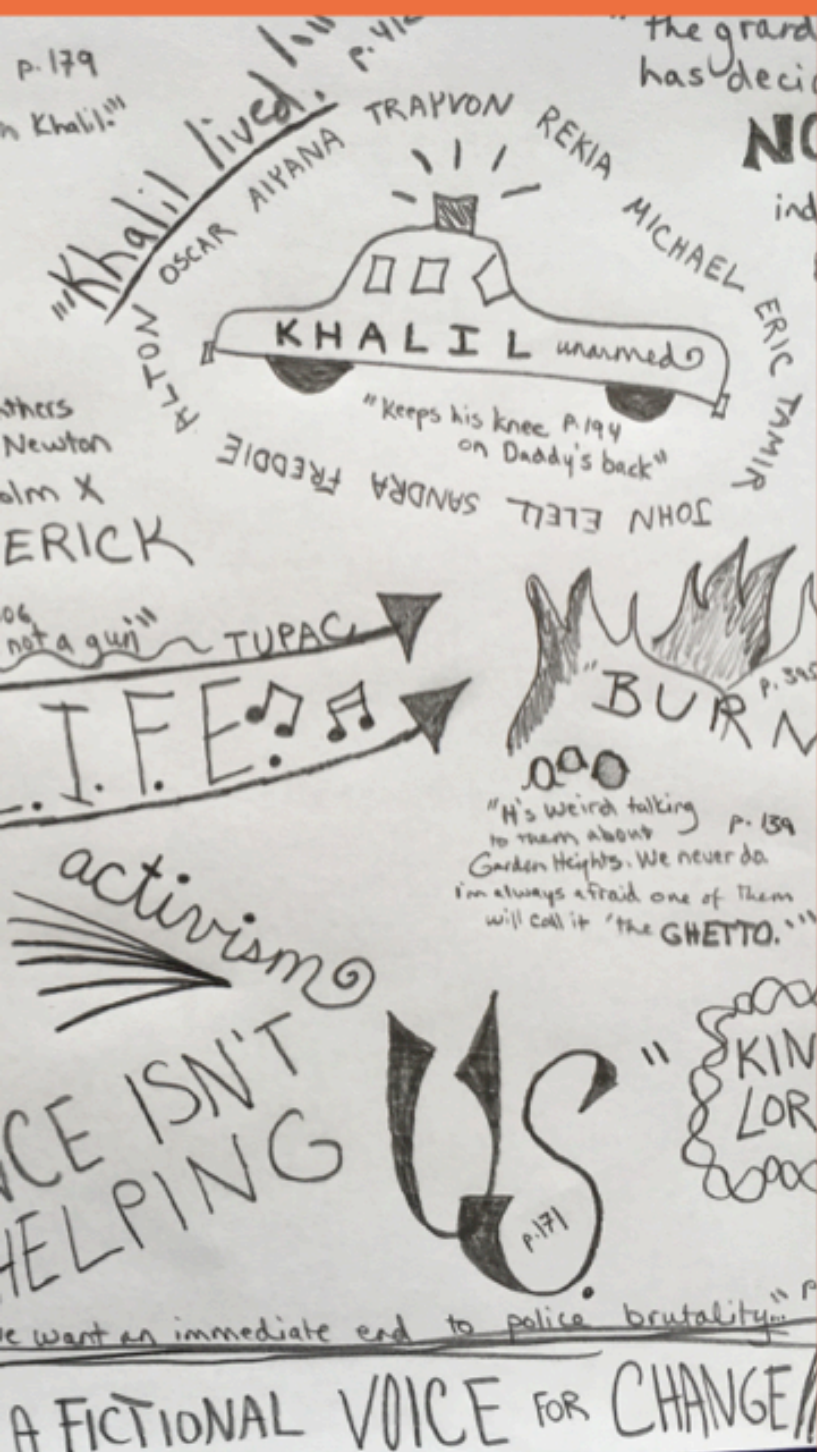 p.179
n Khalil."
"Khalil lived."
"the grand
has decid
NO
ind
OSCAR
AIYANA
TRAYVON
REKIA
MICHAEL
ERIC
TAMIR
JOHN
EZELL
SANDRA
FREDDIE
ALTON
KHALIL unarmed
"Keeps his knee p.194
on Daddy's back"
thers
Newton
olm X
ERICK
06
not a gun" TUPAC
.I.F.E.
"BURN
p.395
"It's weird talking
to them about p.139
Garden Heights. We never do.
I'm always afraid one of them
will call it 'the GHETTO.'"
activism
CE ISN'T
HELPING
US."
p.171
KIN
LOR
e want an immediate end to police brutality..." p
A FICTIONAL VOICE FOR CHANGE